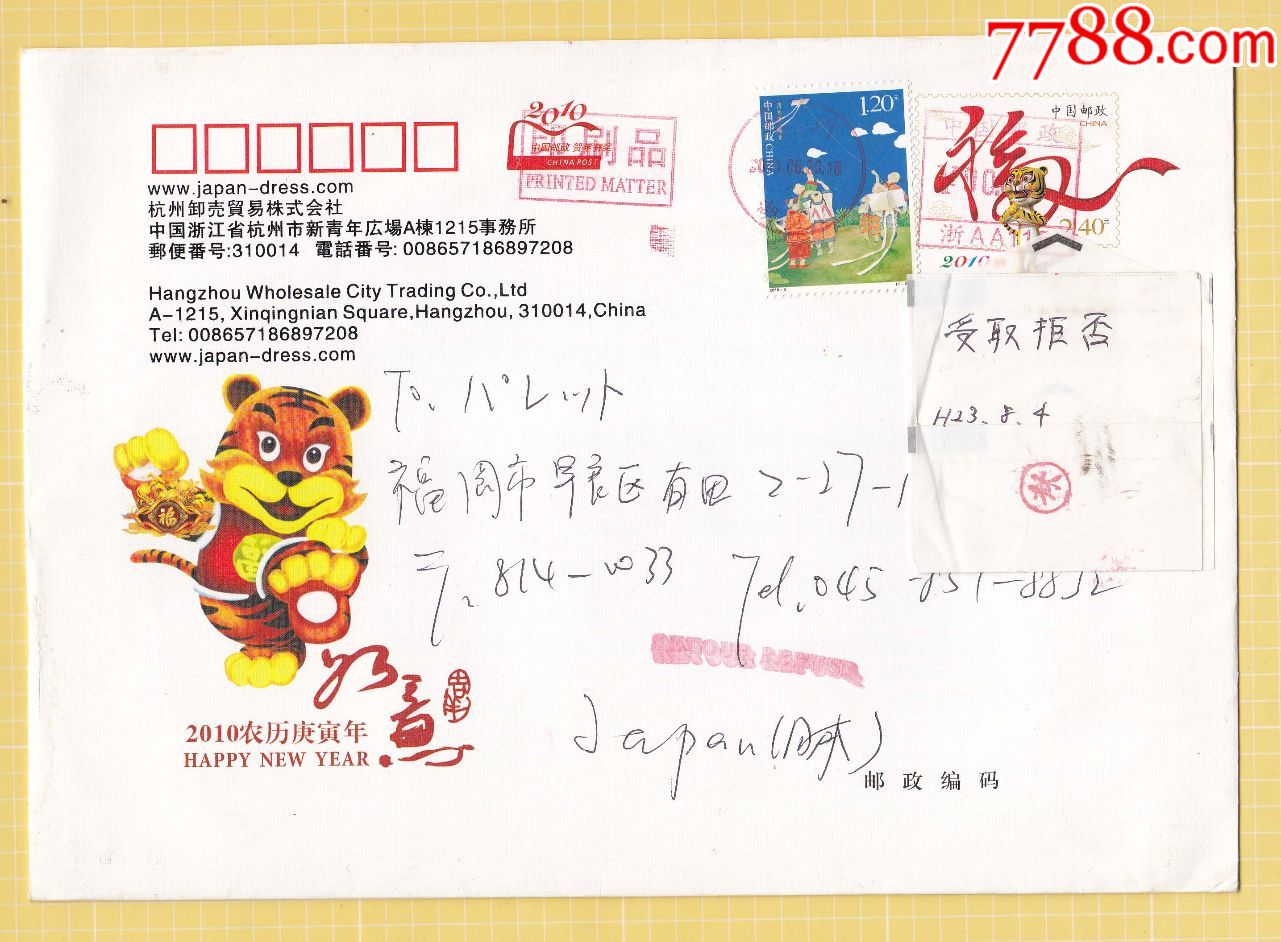 7788.com
2010
中国邮政 贺年有奖
CHINA POST
印刷品
PRINTED MATTER
www.japan-dress.com
杭州卸売貿易株式会社
中国浙江省杭州市新青年広場A棟1215事務所
郵便番号:310014 電話番号: 008657186897208
Hangzhou Wholesale City Trading Co.,Ltd
A-1215, Xinqingnian Square,Hangzhou, 310014,China
Tel: 008657186897208
www.japan-dress.com
中国邮政 CHINA
1.20元
中国邮政
CHINA
福
2.40元
浙AA
2010
受取拒否
H23.8.4
To. パレット
福岡市早良区有田2-27-1
〒.814-0033 Tel.045
RETOUR REFUSE
Japan(日本)
福
如意
2010农历庚寅年
HAPPY NEW YEAR
邮政编码